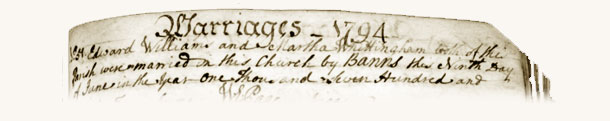 Marriages - 1794
Edward Williams and Martha Whittingham both of this
Parish were married in this Church by Banns this Ninth Day
of June in the Year One Thousand Seven Hundred and